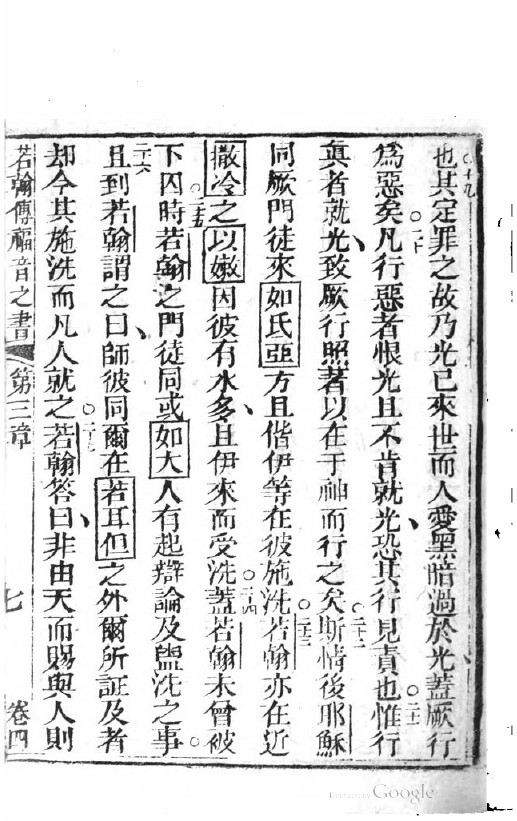 也其定罪之故乃光已來世而人愛黑暗過於光蓋厥行
為惡矣凡行惡者恨光且不肯就光恐其行見責也惟行
真者就光致厥行照著以在于神而行之矣斯情後耶穌
同厥門徒來如氏亞方且偕伊等在彼施洗若翰亦在近
撒冷之以嫩因彼有水多且伊來而受洗蓋若翰未曾被
下囚時若翰之門徒同或如大人有起辯論及盥洗之事
且到若翰謂之曰師彼同爾在若耳但之外爾所証及者
却今其施洗而凡人就之若翰答曰非由天而賜與人則
若翰傳福音之書 第三章 七 卷四
Google